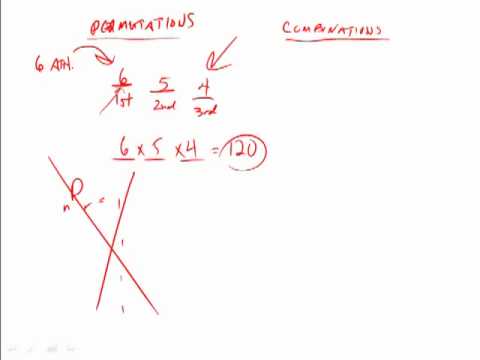 PERMUTATIONS
COMBINATIONS
6 ATH.
6 5 4
1st 2nd 3rd
6 x 5 x 4 = 120
nPr =